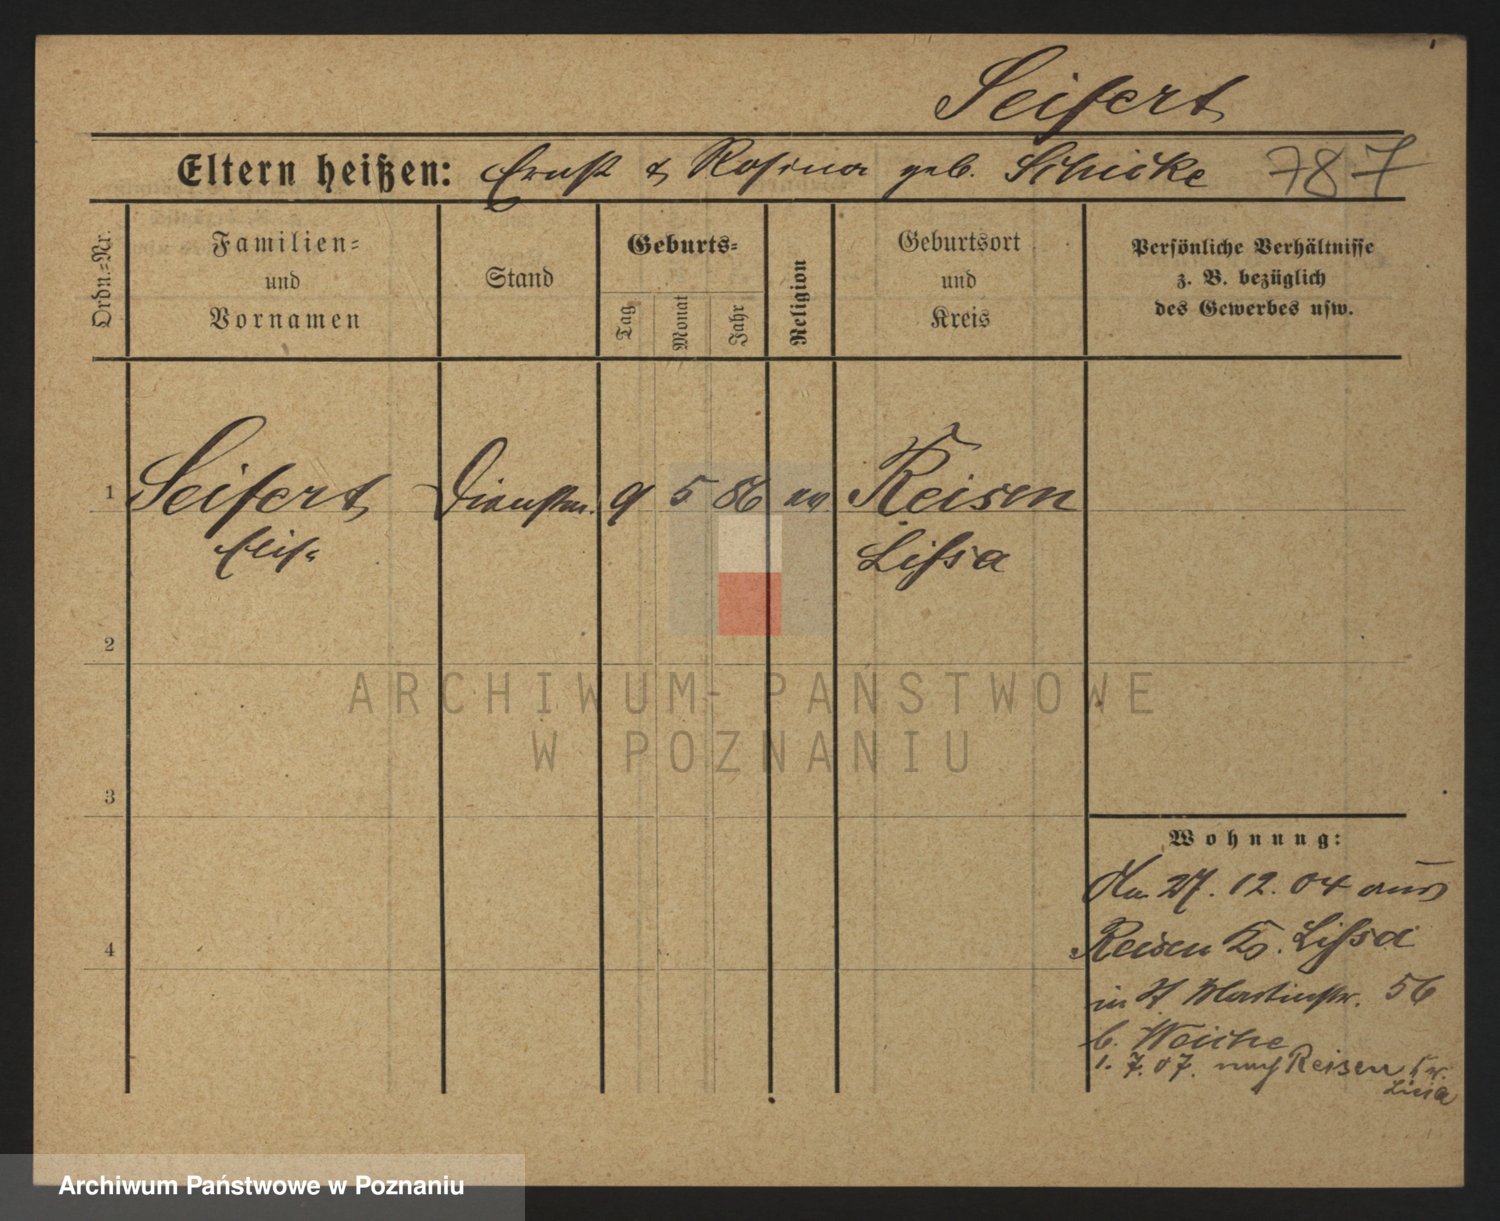 Seifert
Eltern heißen: Ernst & Rosina geb. Schicke 787
Ordn.=Nr.
Familien=
und
Vornamen
Stand
Geburts=
Tag
Monat
Jahr
Religion
Geburtsort
und
Kreis
Persönliche Verhältnisse
z. B. bezüglich
des Gewerbes usw.
1 Seifert Dienstm. 9 5 86 ev Reisen
Elise Lissa
2
3
4
Wohnung:
Am 27. 12. 04 aus
Reisen Kr. Lissa
in St. Martinstr. 56
b. Weiche
1. 7. 07. nach Reisen Kr.
Lissa
ARCHIWUM PAŃSTWOWE
W POZNANIU
Archiwum Państwowe w Poznaniu